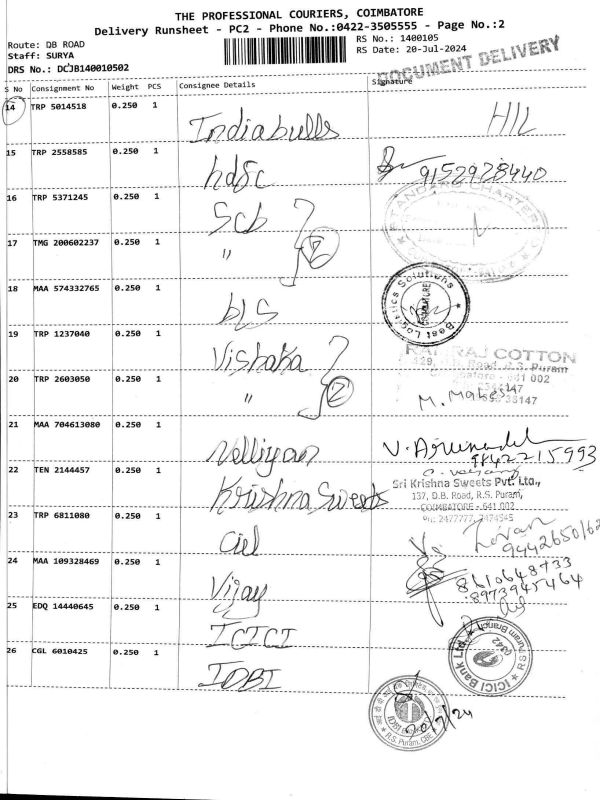 THE PROFESSIONAL COURIERS, COIMBATORE
Delivery Runsheet - PC2 - Phone No.:0422-3505555 - Page No.:2
Route: DB ROAD
RS No.: 1400105
Staff: SURYA
RS Date: 20-Jul-2024
DRS No.: DCJB140010502
DOCUMENT DELIVERY
S No Consignment No Weight PCS Consignee Details Signature
14 TRP 5014518 0.250 1 Indiabulls HIL
15 TRP 2558585 0.250 1 hdfc 9152928440
16 TRP 5371245 0.250 1 Scb
STANDARD CHARTERED
17 TMG 200602237 0.250 1 " 2
18 MAA 574332765 0.250 1 bLS
Best Logistics Solutions
COIMBATORE
19 TRP 1237040 0.250 1 Vishaka
RAMRAJ COTTON
20 TRP 2603050 0.250 1 " 2
M. Mahesh
21 MAA 704613080 0.250 1 Nelliyan
9842215993
22 TEN 2144457 0.250 1 Krishna Sweets
Sri Krishna Sweets Pvt. Ltd.,
137, D.B. Road, R.S. Puram,
COIMBATORE - 641 002
Ph: 2477777, 2474545
23 TRP 6811080 0.250 1 Ciel
24 MAA 109328469 0.250 1 Vijay
8610648733
8973945464
25 EDQ 14440645 0.250 1 ICICI
ICICI Bank Ltd.
R.S. Puram Branch
26 CGL 6010425 0.250 1 IDBI
R.S. Puram, CBE
20/7/24